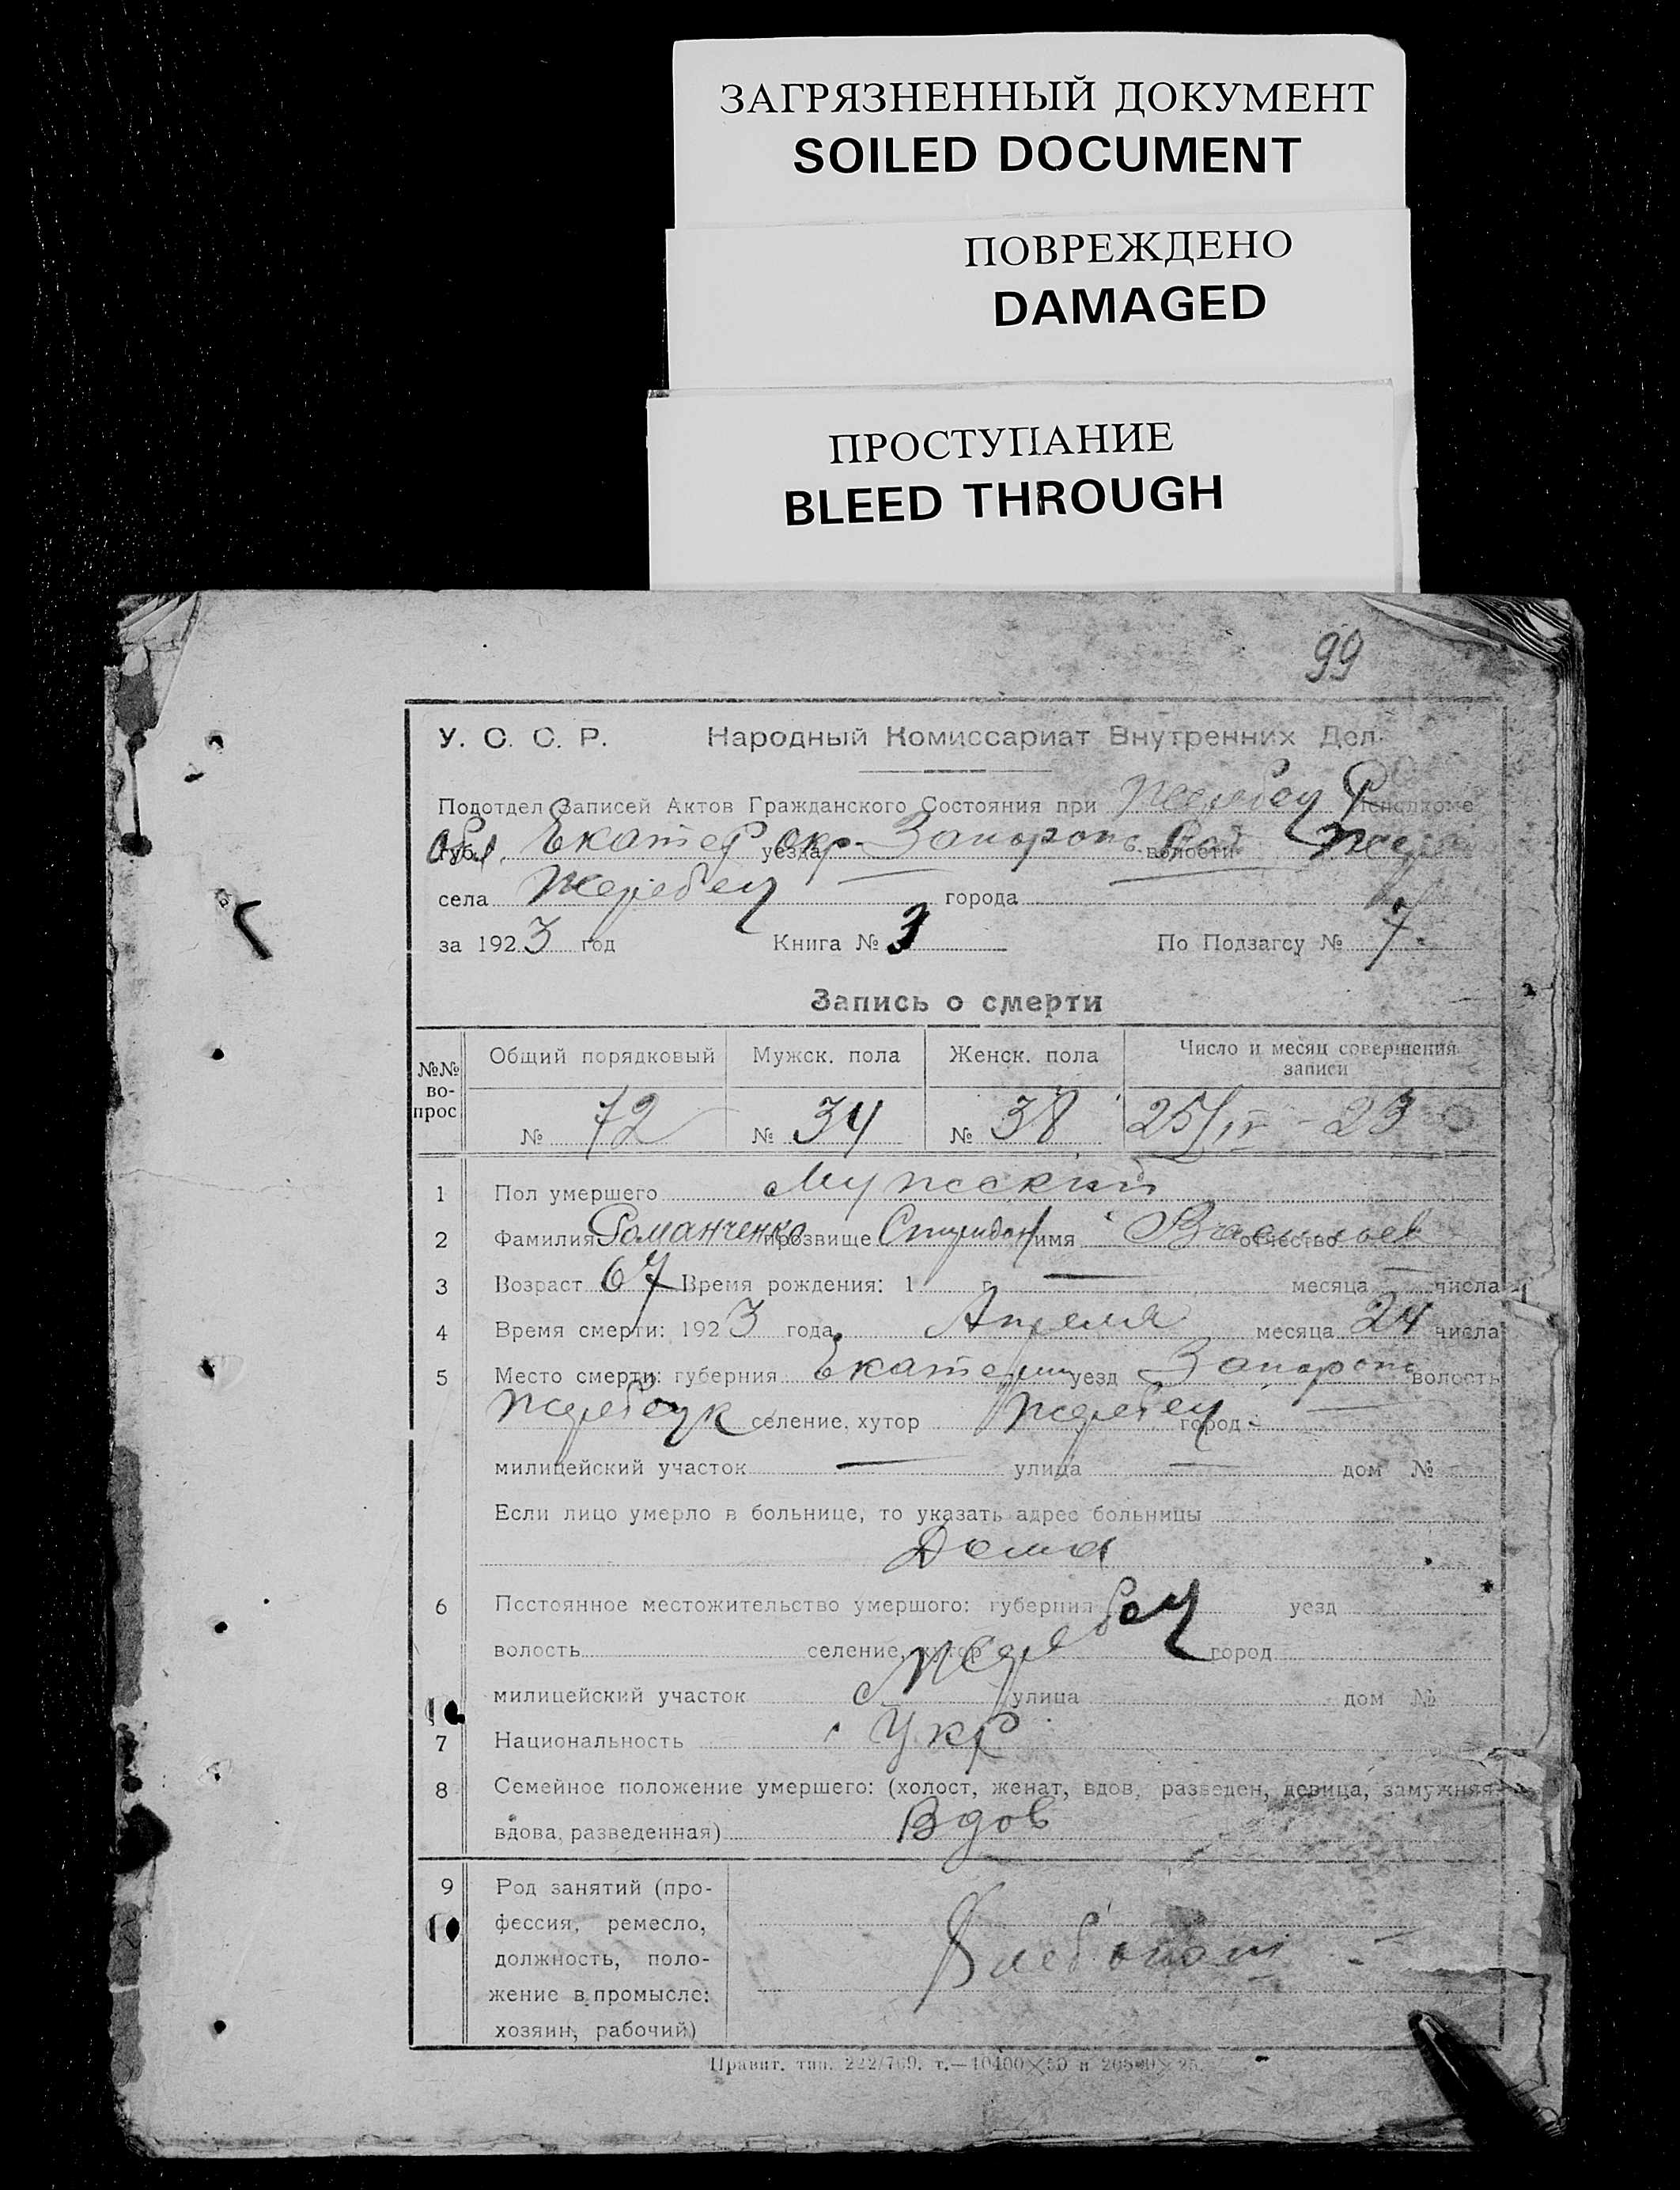 ЗАГРЯЗНЕННЫЙ ДОКУМЕНТ
SOILED DOCUMENT
ПОВРЕЖДЕНО
DAMAGED
ПРОСТУПАНИЕ
BLEED THROUGH
99
У. С. С. Р. Народный Комиссариат Внутренних Дел
Подотдел Записей Актов Гражданского Состояния при Жеребец Р Исполкоме
губ. Екатер уезда окр. Запорож волости
села Жеребец города
за 1923 год Книга № 3 По Подзагсу № 7
Запись о смерти
№№ во-прос Общий порядковый Мужск. пола Женск. пола Число и месяц совершения записи
№ 72 № 34 № 38 25/IV - 23
1 Пол умершего Мужской
2 Фамилия Романченко прозвище Спиридон имя Васильев отчество
3 Возраст 67 Время рождения: 1 г. — месяца — числа
4 Время смерти: 1923 года Апреля месяца 24 числа
5 Место смерти: губерния Екатерин уезд Запорож волость
селение, хутор Жеребец город —
милицейский участок — улица — дом №
Если лицо умерло в больнице, то указать адрес больницы
Дома
6 Постоянное местожительство умершого: губерния уезд
волость селение, хутор Жеребец город
милицейский участок улица дом №
7 Национальность Укр
8 Семейное положение умершего: (холост, женат, вдов, разведен, девица, замужняя
вдова, разведенная) Вдов
9 Род занятий (про-
фессия, ремесло,
должность, поло- Хлебопаш
жение в промысле:
хозяин, рабочий)